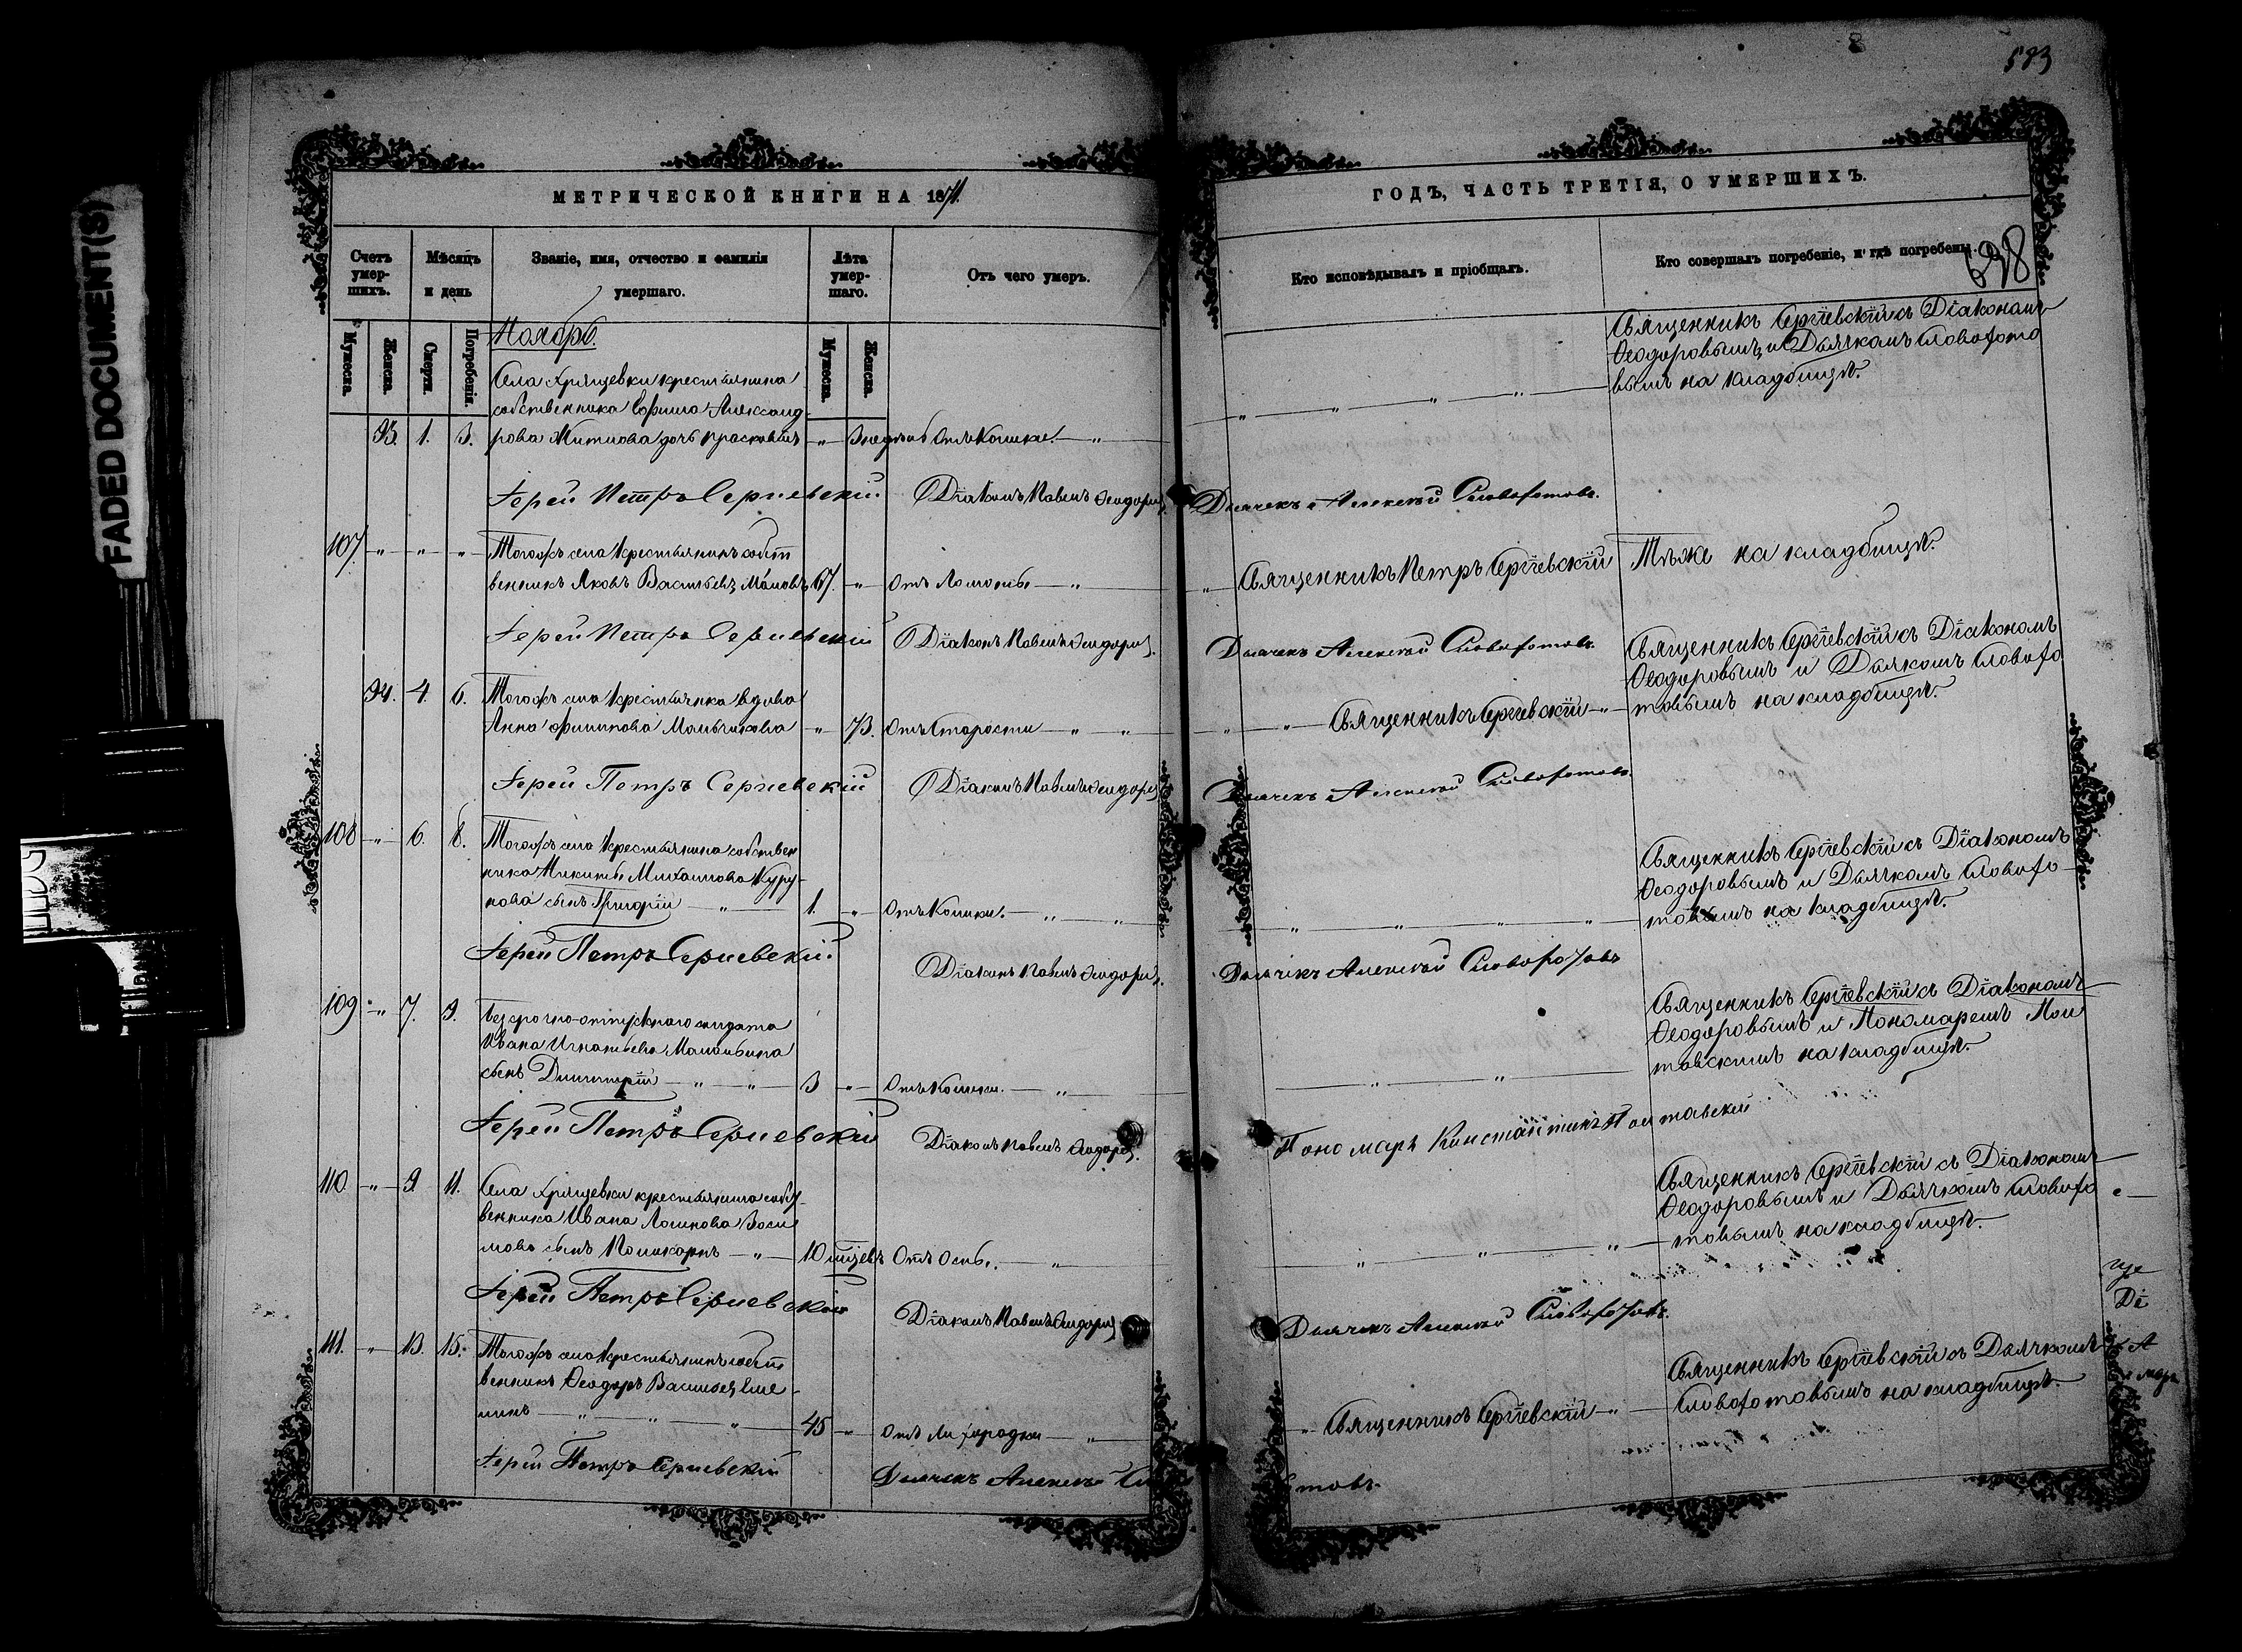 FADED DOCUMENT(S)
583
638
МЕТРИЧЕСКОЙ КНИГИ НА 1871
ГОДЪ, ЧАСТЬ ТРЕТІЯ, О УМЕРШИХЪ.
Счетъ умершихъ.
Мѣсяцъ и день
Званіе, имя, отчество и фамилія умершаго.
Лѣта умершаго.
Отъ чего умеръ.
Кто исповѣдывалъ и пріобщалъ.
Кто совершалъ погребеніе, и гдѣ погребены.
Мужеска.
Женска.
Смерти.
Погребенія.
Мужеска.
Женска.
Ноябрь.
Села Хрящевки крестьянина
собственника Ефима Александ-
93. 1. 3. рова Митиова дочь Прасковія „ 3 недѣль Отъ Кошки. „
Священникъ Сергіевскій съ Діакономъ
Ѳеодоровымъ и Дьячкомъ Словохото
вымъ на кладбищѣ.
Іерей Петръ Сергиевскій Діаконъ Павелъ Ѳеодоровъ. Дьячекъ Алексѣй Словохотовъ.
107. „ „ „ Тогожъ села крестьянинъ собст
венникъ Яковъ Васильевъ 67. „ Отъ Ломоты „
„ Священникъ Петръ Сергіевскій Тѣже на кладбищѣ.
Іерей Петръ Сергиевскій Діаконъ Павелъ Ѳеодоровъ. Дьячекъ Алексѣй Словохотовъ.
94. 4. 6. Тогожъ села крестьянка вдова
Анна Филиппова Мальчикова „ 73. Отъ Старости „ „
„ „ Священникъ Сергіевскій „
Священникъ Сергіевскій съ Діакономъ
Ѳеодоровымъ и Дьякомъ Словохо
товымъ на кладбищѣ.
Іерей Петръ Сергиевскій Діаконъ Павелъ Ѳеодоровъ Дьячекъ Алексѣй Словохотовъ
108 „ 6. 8. Тогожъ села крестьянина собствен
ника Никиты Михаилова Куру-
нова сынъ Григорій „ 1. „ Отъ Кошки. „ „
Священникъ Сергіевскій съ Діакономъ
Ѳеодоровымъ и Дьячкомъ Словохо-
товымъ на кладбищѣ.
Іерей Петръ Сергиевскій Діаконъ Павелъ Ѳеодоровъ. Дьячекъ Алексѣй Словохотовъ
109 „ 7. 9. Безсрочно-отпускного солдата
Ивана Игнатьева
сынъ Димитрій „ „ 3 „ Отъ Кошки. „
Священникъ Сергіевскій съ Діакономъ
Ѳеодоровымъ и Пономаремъ Пол
тавскимъ на кладбищѣ.
Іерей Петръ Сергиевскій Діаконъ Павелъ Ѳеодоровъ. Пономарь Константинъ Полтавскій
110 „ 9. 11. Села Хрящевки крестьянина собст-
венника Ивана
сынъ Поликарпъ „ 10 мѣсяцевъ Отъ Оспы. „
Священникъ Сергіевскій съ Діакономъ
Ѳеодоровымъ и Дьячкомъ Словохо
товымъ на кладбищѣ.
Іерей Петръ Сергиевскій Діаконъ Павелъ Ѳеодоровъ Дьячекъ Алексѣй Словохотовъ.
111. „ 13. 15. Тогожъ села крестьянинъ собст
венникъ Ѳеодоръ Васильевъ Еме-
линъ „ „ „ 45 „ Отъ Лихорадки „
„ Священникъ Сергіевскій „
Священникъ Сергіевскій съ Дьячкомъ
Словохотовымъ на кладбищѣ.
Іерей Петръ Сергиевскій Дьячекъ Алексѣй Словохотовъ.